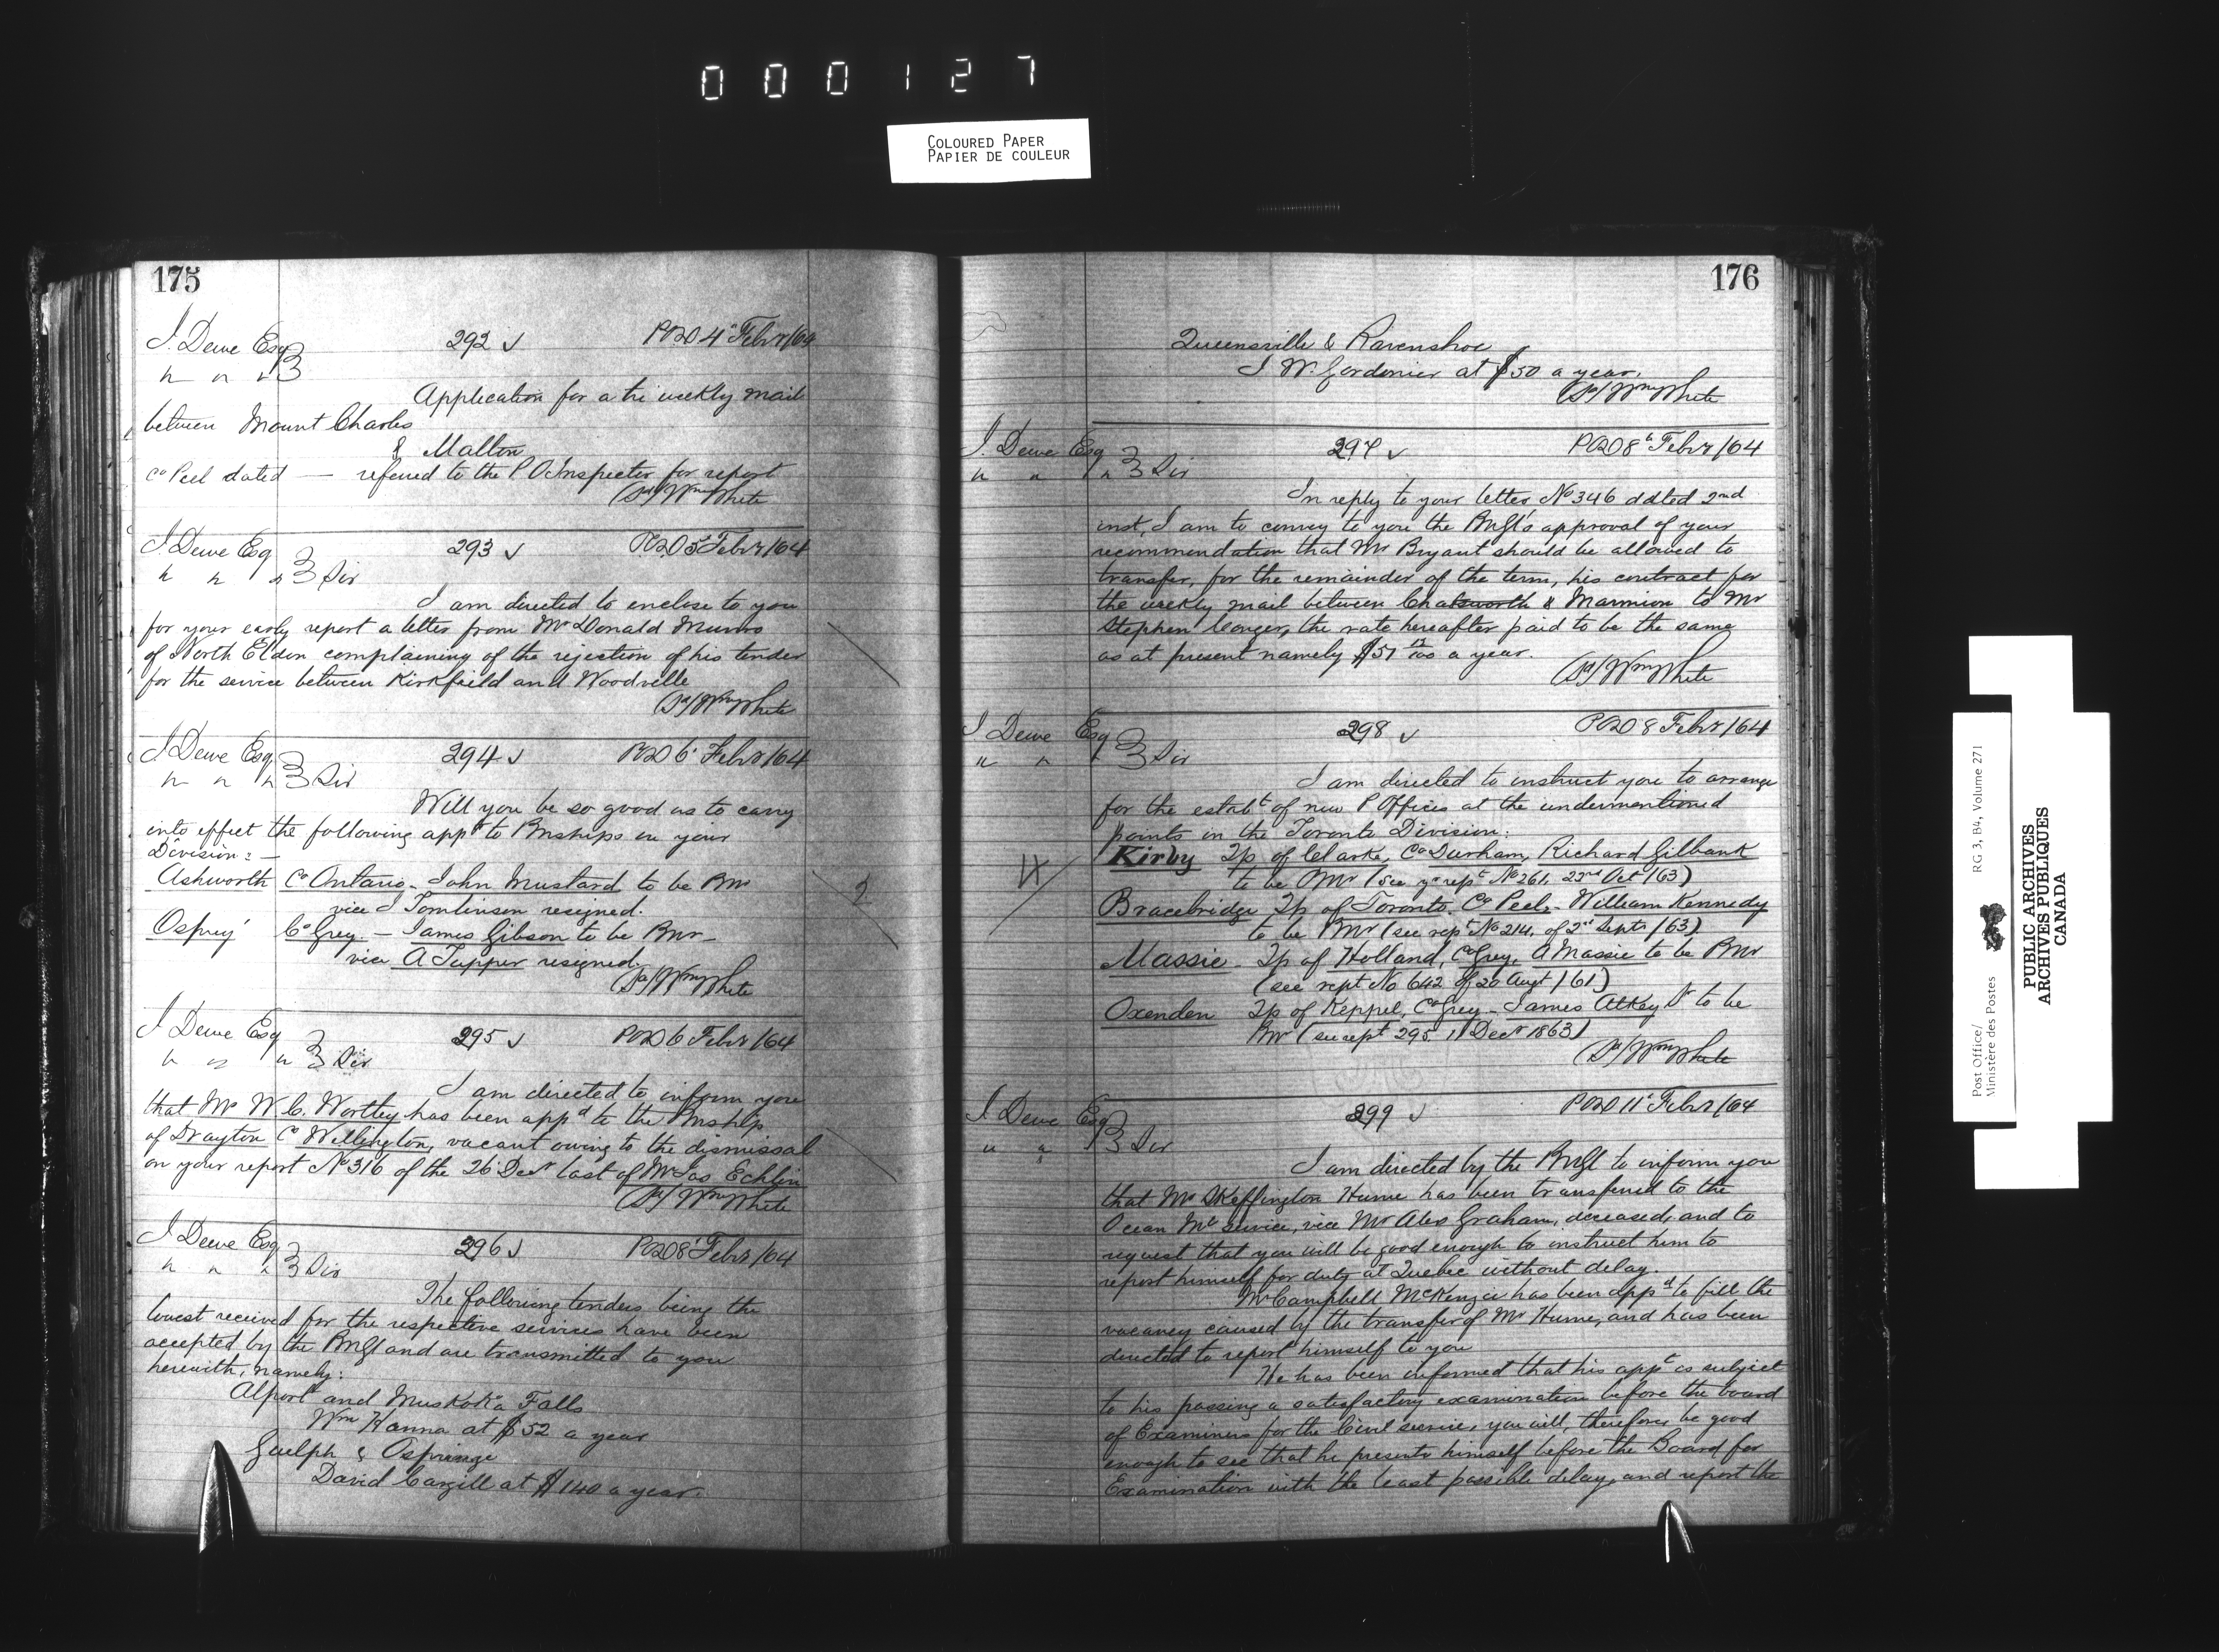 000127
COLOURED PAPER
PAPIER DE COULEUR
175
J. Dewe Esq 292 ✓ POD 4" Febr/64
" " "
Application for a tri weekly mail
between Mount Charles
& Malton
Co Peel dated — referred to the P.O. Inspector for report
(Sd/ Wm White
J Dewe Esq 293 ✓ POD 5" Febr/64
" " " Sir
I am directed to enclose to you
for your early report a letter from Mr Donald Munro
of North Eldon complaining of the rejection of his tender
for the service between Kirkfield and Woodville
(Sd/ Wm White
J Dewe Esq 294 ✓ POD 6" Febr/64
" " " Sir
Will you be so good as to carry
into effect the following appts to Pmships in your
Division: —
Ashworth Co Ontario - John Mustard to be Pmr 2
vice J Tomlinson resigned.
Osprey Co Grey. — James Gibson to be Pmr —
vice A Tupper resigned.
(Sd/ Wm White
J Dewe Esq 295 ✓ POD 6 Febr/64
" " " Sir
I am directed to inform you
that Mr W. C. Wortley has been appd to the Pmship
of Drayton Co Wellington, vacant owing to the dismissal
on your report No 316 of the 26 Decr last of Mr Jas Echlin
(Sd/ Wm White
J Dewe Esq 296 ✓ POD 8" Febr/64
" " " Sir
The following tenders being the
lowest received for the respective services have been
accepted by the PmGl and are transmitted to you
herewith, namely:
Alport and Muskoka Falls
Wm Hanna at $52 a year
Guelph & Ospringe
David Cargill at $140 a year.
176
Queensville & Ravenshoe
J W. Gordonier at $50 a year.
(Sd/ Wm White
J. Dewe Esq 297 ✓ POD 8" Febr/64
" " " Sir
In reply to your letter No 346 dated 2nd
inst, I am to convey to you the PmGl's approval of your
recommendation that Mr Bryant should be allowed to
transfer, for the remainder of the term, his contract for
the weekly mail between Chatsworth & Marmion to Mr
Stephen Conger, the rate hereafter paid to be the same
as at present namely $51 12/100 a year.
(Sd/ Wm White
J Dewe Esq 298 ✓ POD 8 Febr/64
" " " Sir
I am directed to instruct you to arrange
for the establt of new P Offices at the undermentioned
points in the Toronto Division:
4 Kirby Tp of Clarke, Co Durham, Richard Gilbank
to be Pmr (see yr rept No 261, 22nd Oct/63)
Bracebridge Tp of Toronto. Co Peel. - William Kennedy
to be Pmr (see rept No 214, of 2" Septr/63)
Massie - Tp of Holland, Co Grey, A Massie to be Pmr
(see rept No 642 of 20 Augt/61)
Oxenden Tp of Keppel, Co Grey - James Atkey Sr to be
Pmr (see rept 295. 11 Decr 1863)
(Sd/ Wm White
J Dewe Esq 299 ✓ POD 11" Febr/64
" " " Sir
I am directed by the PmGl to inform you
that Mr Skeffington Hume has been transferred to the
Ocean Ml service, vice Mr Alex Graham, deceased, and to
request that you will be good enough to instruct him to
report himself for duty at Quebec without delay.
Mr Campbell McKenzie has been appd to fill the
vacancy caused by the transfer of Mr Hume, and has been
directed to report himself to you
He has been informed that his appt is subject
to his passing a satisfactory examination before the board
of Examiners for the Civil service, you will, therefore, be good
enough to see that he presents himself before the Board for
Examination with the least possible delay, and report the
Post Office/ RG 3, B4, Volume 271
Ministère des Postes
PUBLIC ARCHIVES
ARCHIVES PUBLIQUES
CANADA